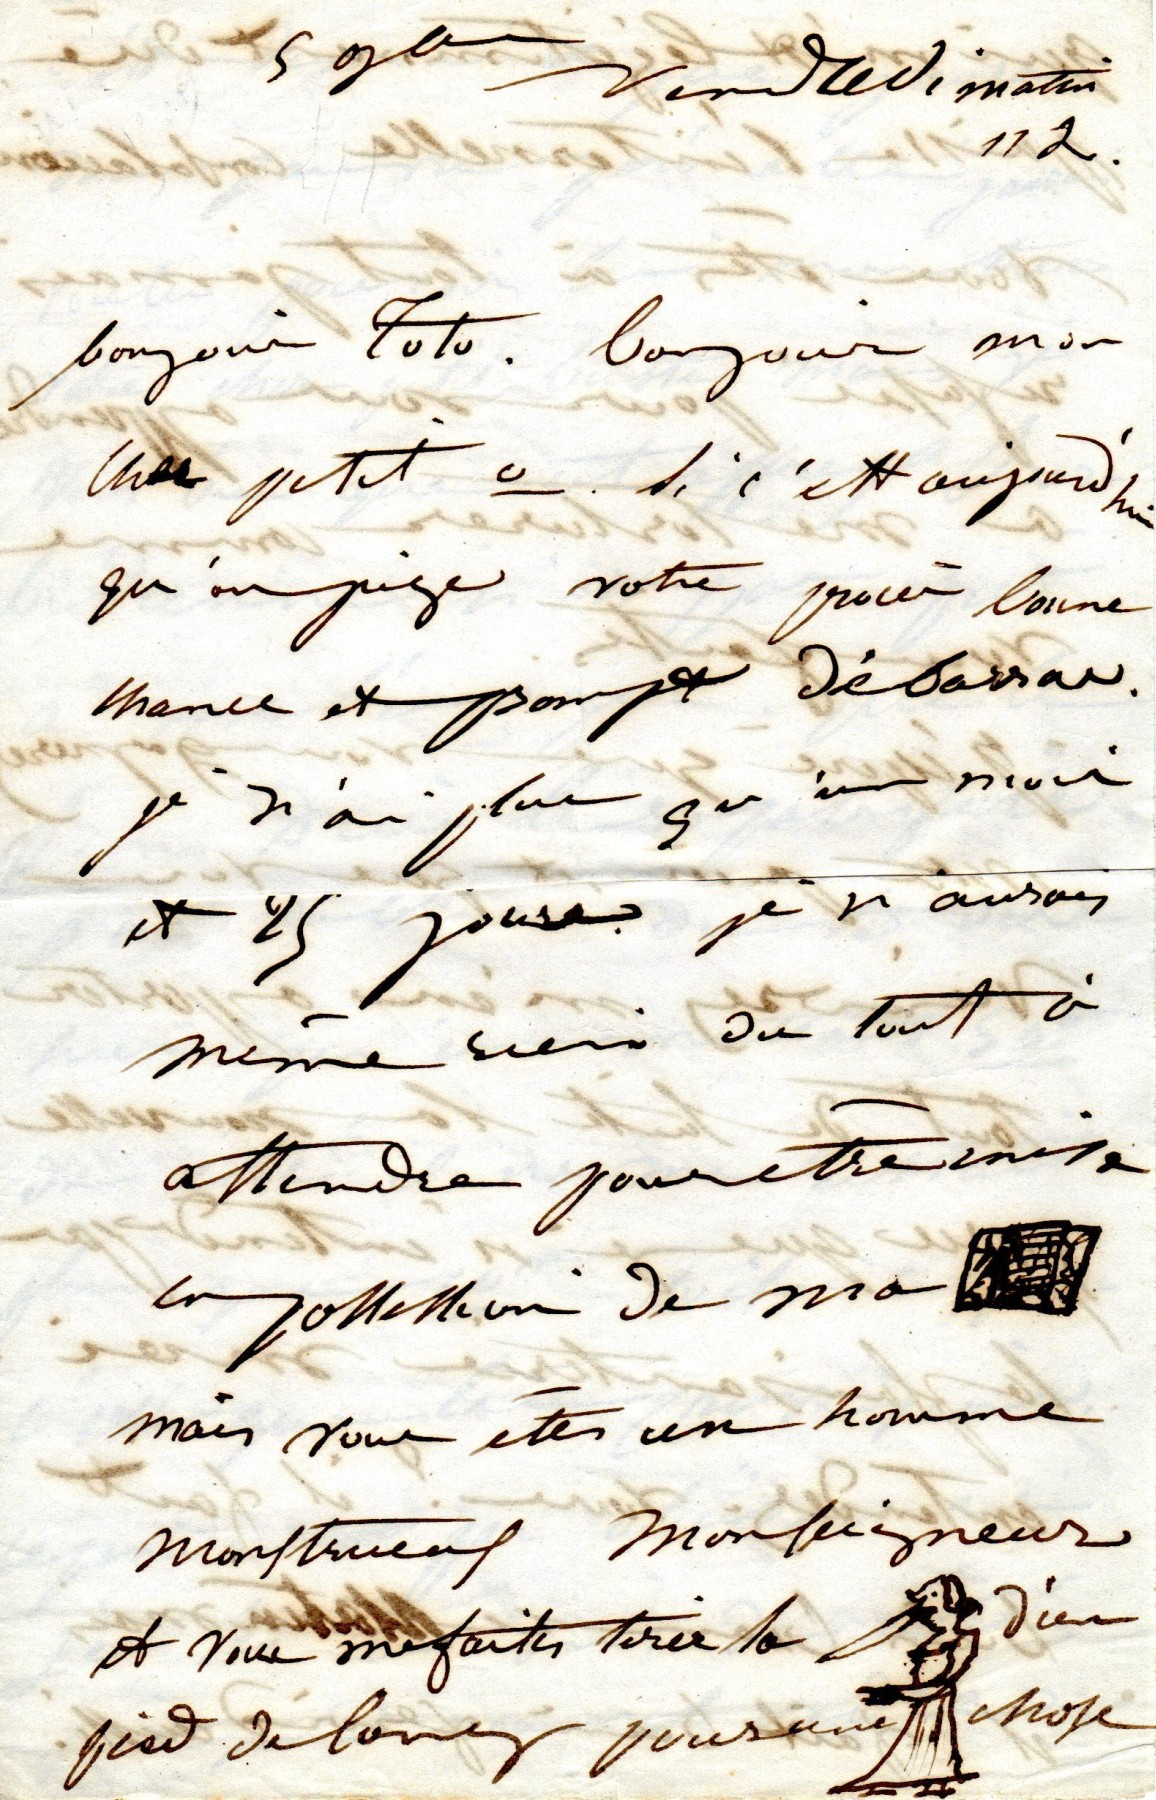 5 9bre
Vendredi matin
11 h.
bonjour Toto. bonjour mon
cher petit o. Si c'est aujourd'hui
qu'on juge votre procès bonne
chance et prompt débarras.
je n'ai plus qu'un mois
et 25 jours. je n'aurais
même rien du tout à
attendre pour être mise
en possession de ma
mais vous êtes un homme
monstrueux Monseigneur
et vous me faites tirer la d'un
pied de long pour une chose